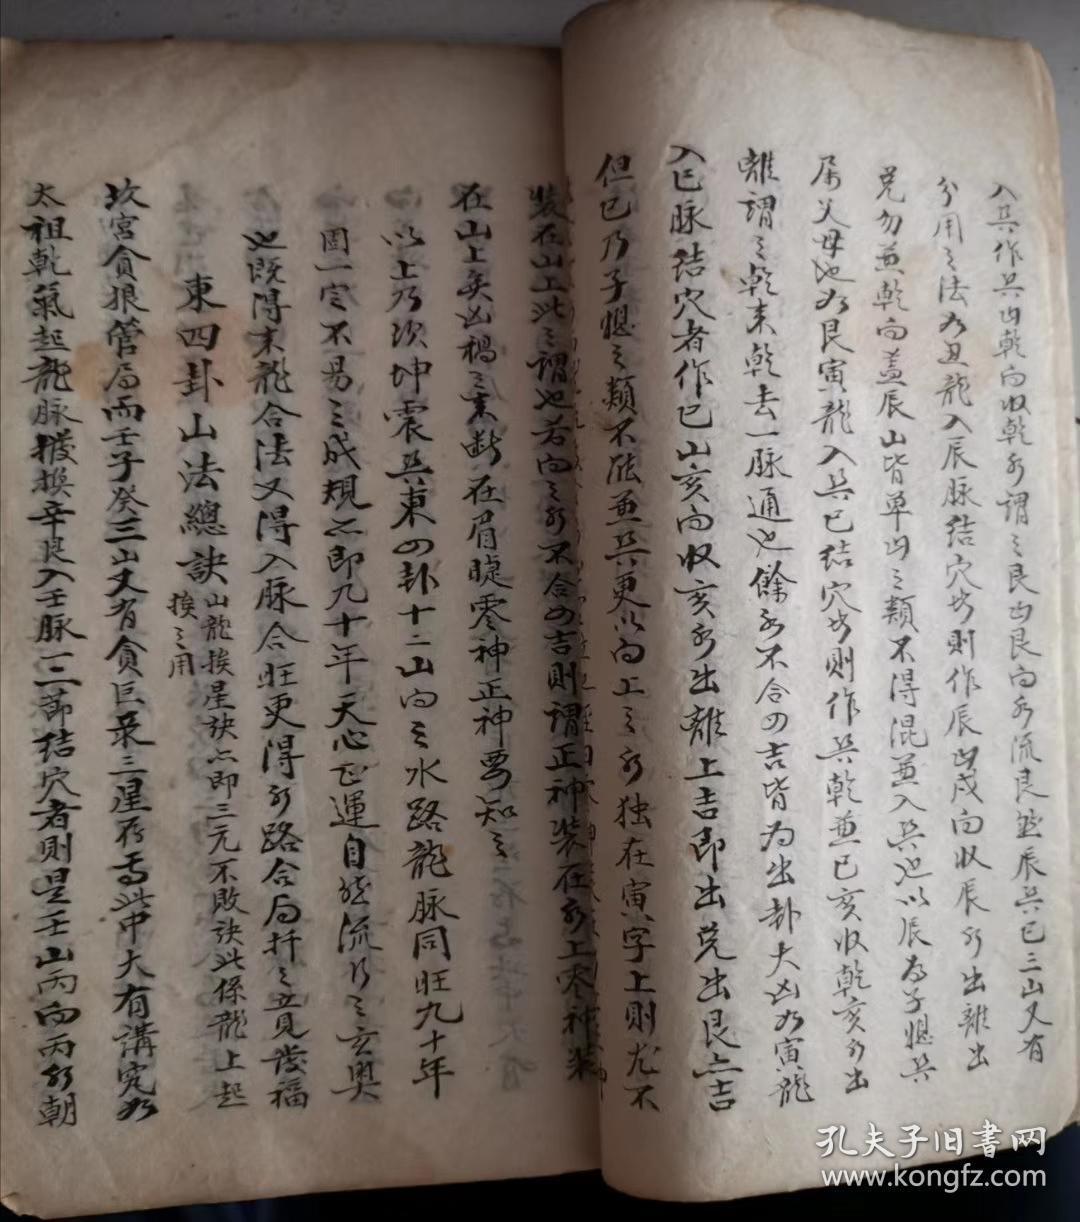 入巽作巽山乾向收乾水謂之艮山艮向水流艮然辰巽巳三山又有
分用之法如丑龍入辰脉結穴也則作辰山戌向收辰水出離出
兌勿兼乾向盖辰山皆單山之類不得混兼入巽也以辰為子媳巽
属父母也如艮寅龍入巽巳結穴也則作巽乾兼巳亥收乾亥水出
離謂之乾来乾去一脉通也餘水不合四吉皆為出卦大凶如寅龍
入巳脉結穴者作巳山亥向收亥水出離上吉即出兌出艮亦吉
但巳乃子媳之類不能兼巽更以向上之水独在寅字上則尤不
裝在山上此之謂也若向之水不合四吉則謂正神裝在水上零神裝
在山上矣凶禍之来断在眉睫零神正神要知之
以上乃坎坤震巽東四卦十二山向之水路龍脉同旺九十年
因一定不易之成規亦即九十年天心正運自然流行之玄奥
也既得来龍合法又得入脉合旺更得水路合局扦之立見發福
東四卦山法總訣
山龍挨星訣亦即三元不敗訣此係龍上起
挨之用
坎宮貪狼管局而壬子癸三山又有貪巨彔三星存焉此中大有講究如
太祖乾氣起龍脉撥換辛艮入壬脉一二節結穴者則是壬山丙向丙水朝
孔夫子旧書网
www.kongfz.com